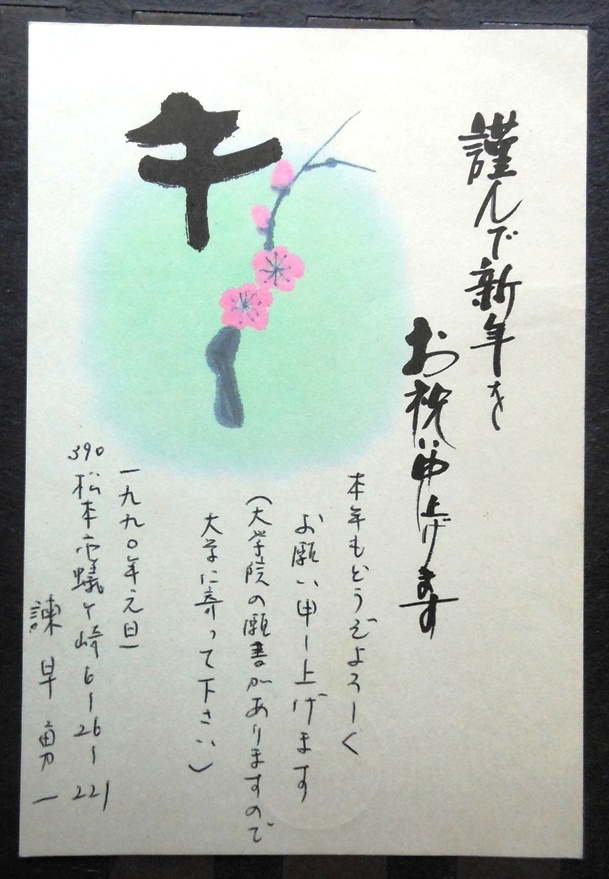 謹んで新年を
お祝い申し上げます
午
本年もどうぞよろしく
お願い申し上げます
(大学院の願書がありますので
大学に寄って下さい)
一九九〇年元旦
390
松本市蟻ケ崎6-26-221
諫早勇一